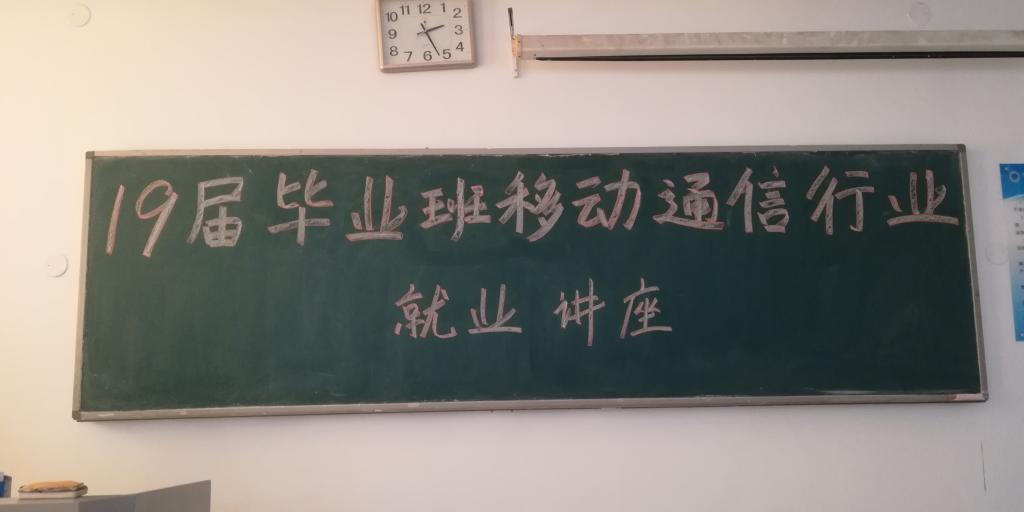 19届毕业班移动通信行业
就业讲座
11 12 1
10 2
9 3
8 4
7 6 5